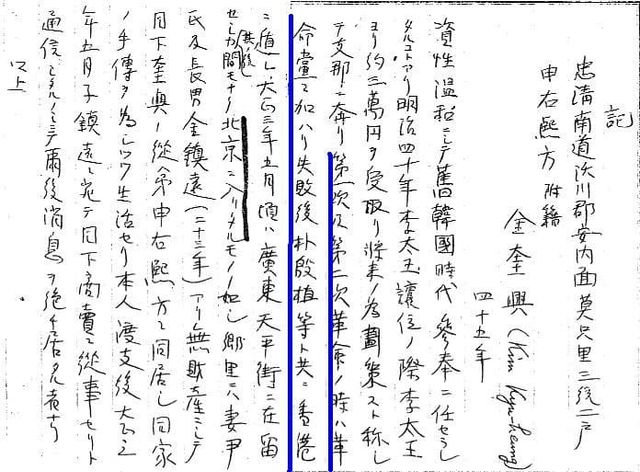 記
忠清南道沃川郡安内面莫只里三統二戸
申右熙方 附籍
金奎興(Kim Kyu-heung)
四十五年
資性温和ニシテ舊韓國時代參奉ニ任セラレ
タルコトアリ明治四十年李太王讓位ノ際李太王
ヨリ約三萬円ヲ受取リ将来ノ為畫策スト称し
テ支那ニ奔リ第一次及第二次革命ノ時ハ革
命黨ニ加ハリ失敗後朴殷植等ト共ニ香港
ニ 大正三年五月頃ハ廣東天平街ニ在留
セシカ其後 北京ニ入リタルモノノ如し郷里ニハ妻尹
氏及長男金鎮遠(二十三年)アリ無財産ニシテ
目下奎興ノ從弟申右熙方ニ同居し同家
ノ手傳ヲ為シツツ生活セリ本人渡支後大正三
年五月子鎮遠ニ宛テ目下商賣ニ從事セリト
通信シタルノミニテ爾後消息ヲ絶チ居タル者ナ